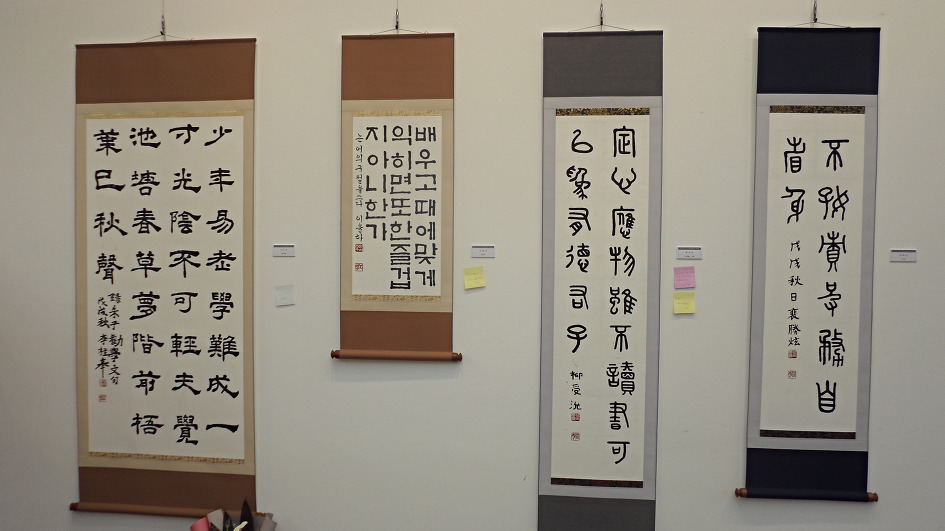 少年易老學難成一
寸光陰不可輕未覺
池塘春草夢階前梧
葉已秋聲
錄朱子勸學文句
戊戌秋 李桂
배우고때에맞게
익히면또한즐겁
지아니한가
논어의구절을쓰다
定心應物雖不讀書可
以爲有德君子
柳受沇
不 責 務自
省身
戊戌秋日裵勝炫